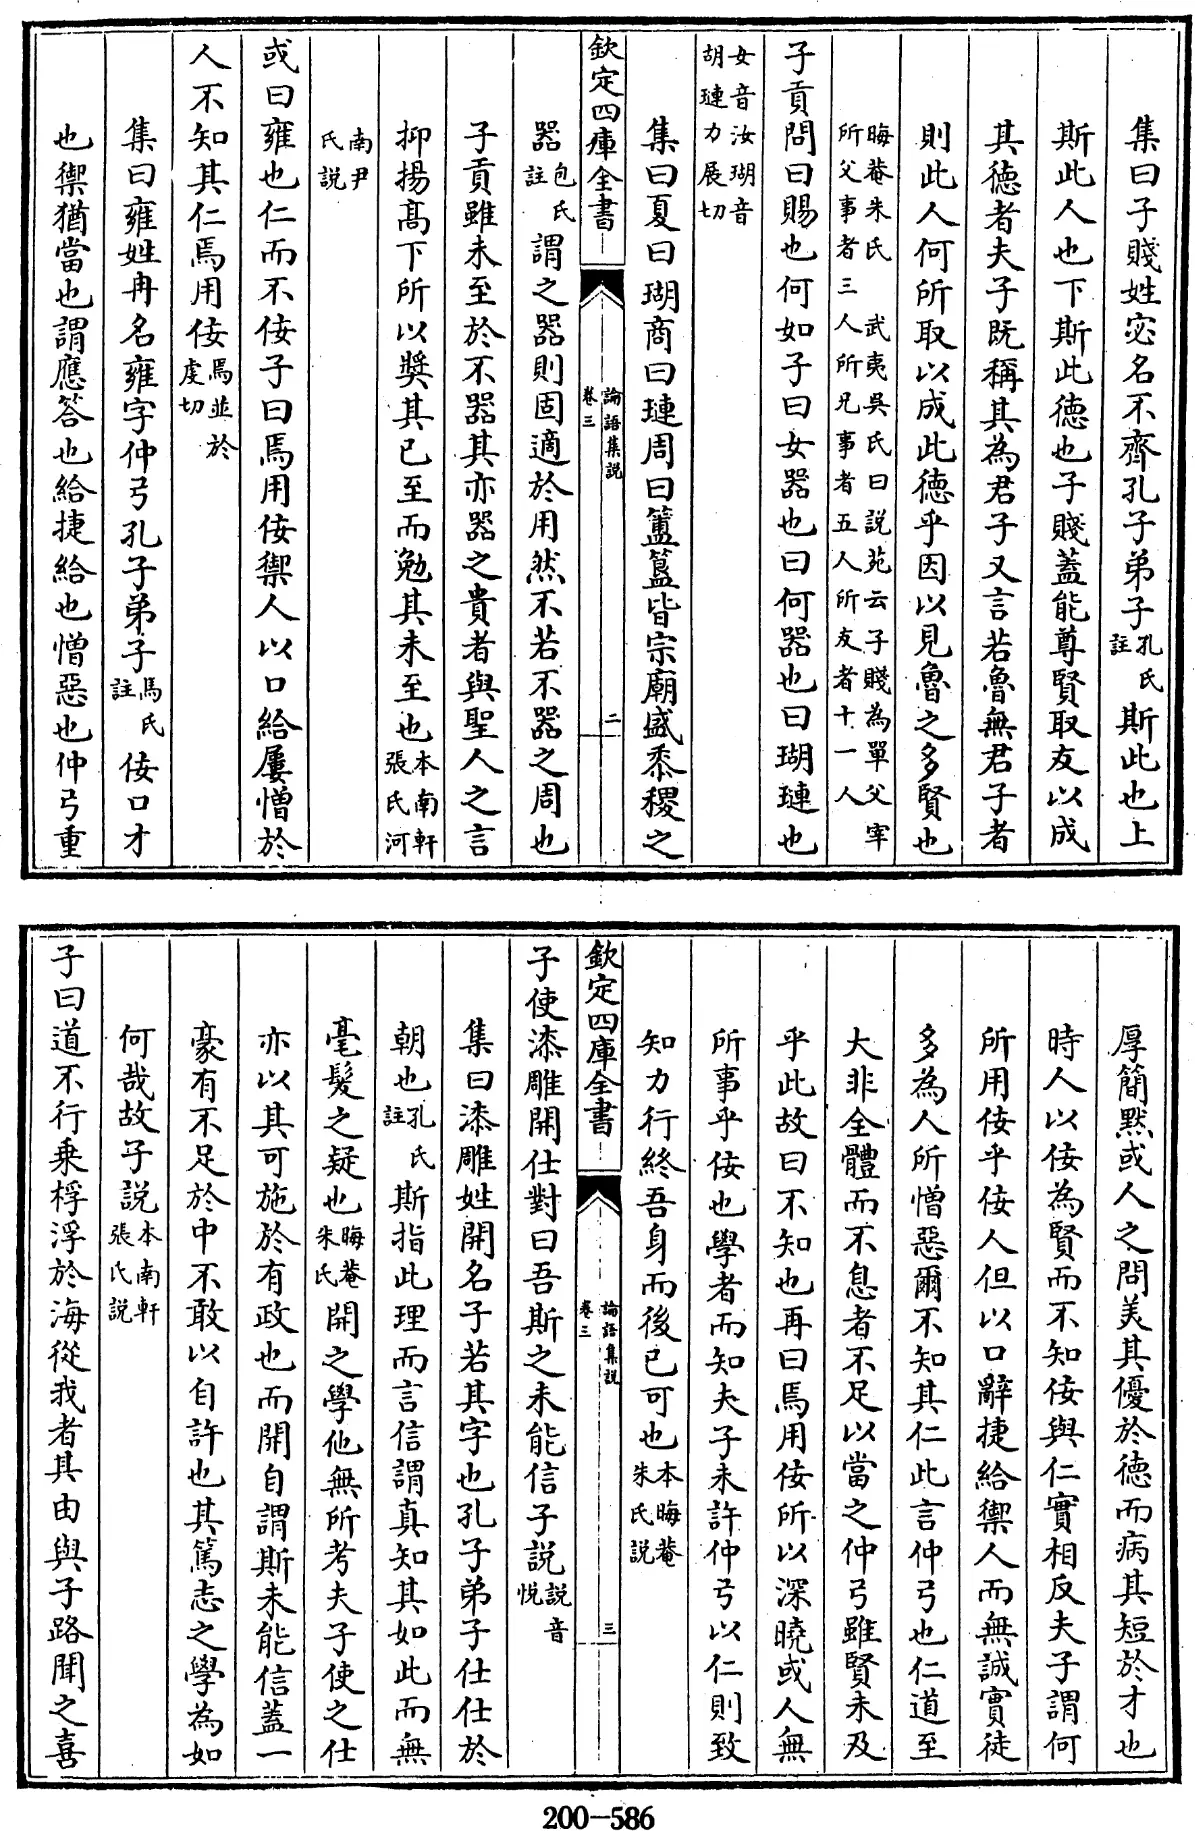 集曰子賤姓宓名不齊孔子弟子孔氏註斯此也上
斯此人也下斯此德也子賤蓋能尊賢取友以成
其德者夫子既稱其為君子又言若魯無君子者
則此人何所取以成此德乎因以見魯之多賢也
晦菴朱氏　武夷吳氏曰說苑云子賤為單父宰
所父事者三人所兄事者五人所友者十一人
子貢問曰賜也何如子曰女器也曰何器也曰瑚璉也
女音汝瑚音
胡璉力展切
集曰夏曰瑚商曰璉周曰簠簋皆宗廟盛黍稷之
欽定四庫全書
論語集說
卷三
二
器包氏註謂之器則固適於用然不若不器之周也
子貢雖未至於不器其亦器之貴者與聖人之言
抑揚髙下所以奬其已至而勉其未至也本南軒張氏河
南尹氏說
或曰雍也仁而不佞子曰焉用佞禦人以口給屢憎於
人不知其仁焉用佞焉並於虔切
集曰雍姓冉名雍字仲弓孔子弟子馬氏註佞口才
也禦猶當也謂應答也給捷給也憎惡也仲弓重
厚簡默或人之問美其優於德而病其短於才也
時人以佞為賢而不知佞與仁實相反夫子謂何
所用佞乎佞人但以口辭捷給禦人而無誠實徒
多為人所憎惡爾不知其仁此言仲弓也仁道至
大非全體而不息者不足以當之仲弓雖賢未及
乎此故曰不知也再曰焉用佞所以深曉或人無
所事乎佞也學者而知夫子未許仲弓以仁則致
知力行終吾身而後已可也本晦菴朱氏說
欽定四庫全書
論語集說
卷三
三
子使漆雕開仕對曰吾斯之未能信子說說音悅
集曰漆雕姓開名子若其字也孔子弟子仕仕於
朝也孔氏註斯指此理而言信謂真知其如此而無
毫髮之疑也晦菴朱氏開之學他無所考夫子使之仕
亦以其可施於有政也而開自謂斯未能信蓋一
豪有不足於中不敢以自許也其篤志之學為如
何哉故子說本南軒張氏說
子曰道不行乘桴浮於海從我者其由與子路聞之喜
200—586